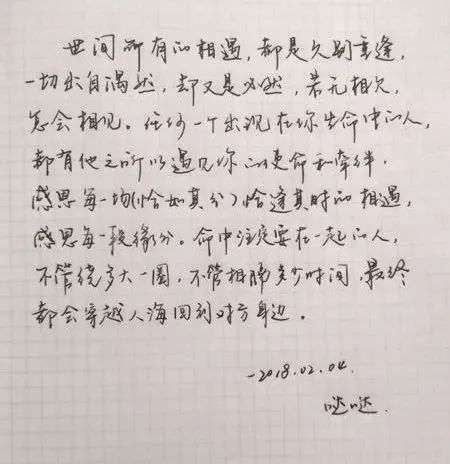 世间所有的相遇，都是久别重逢，
一切出自偶然，却又是必然，若无相欠，
怎会相见。任何一个出现在你生命中的人，
都有他之所以遇见你的使命和牵绊，
感恩每一场(恰如其分)恰逢其时的相遇，
感恩每一段缘分。命中注定要在一起的人，
不管绕多大一圈，不管相隔多少时间，最终
都会穿越人海回到对方身边。
-2018.02.04.
哒哒.